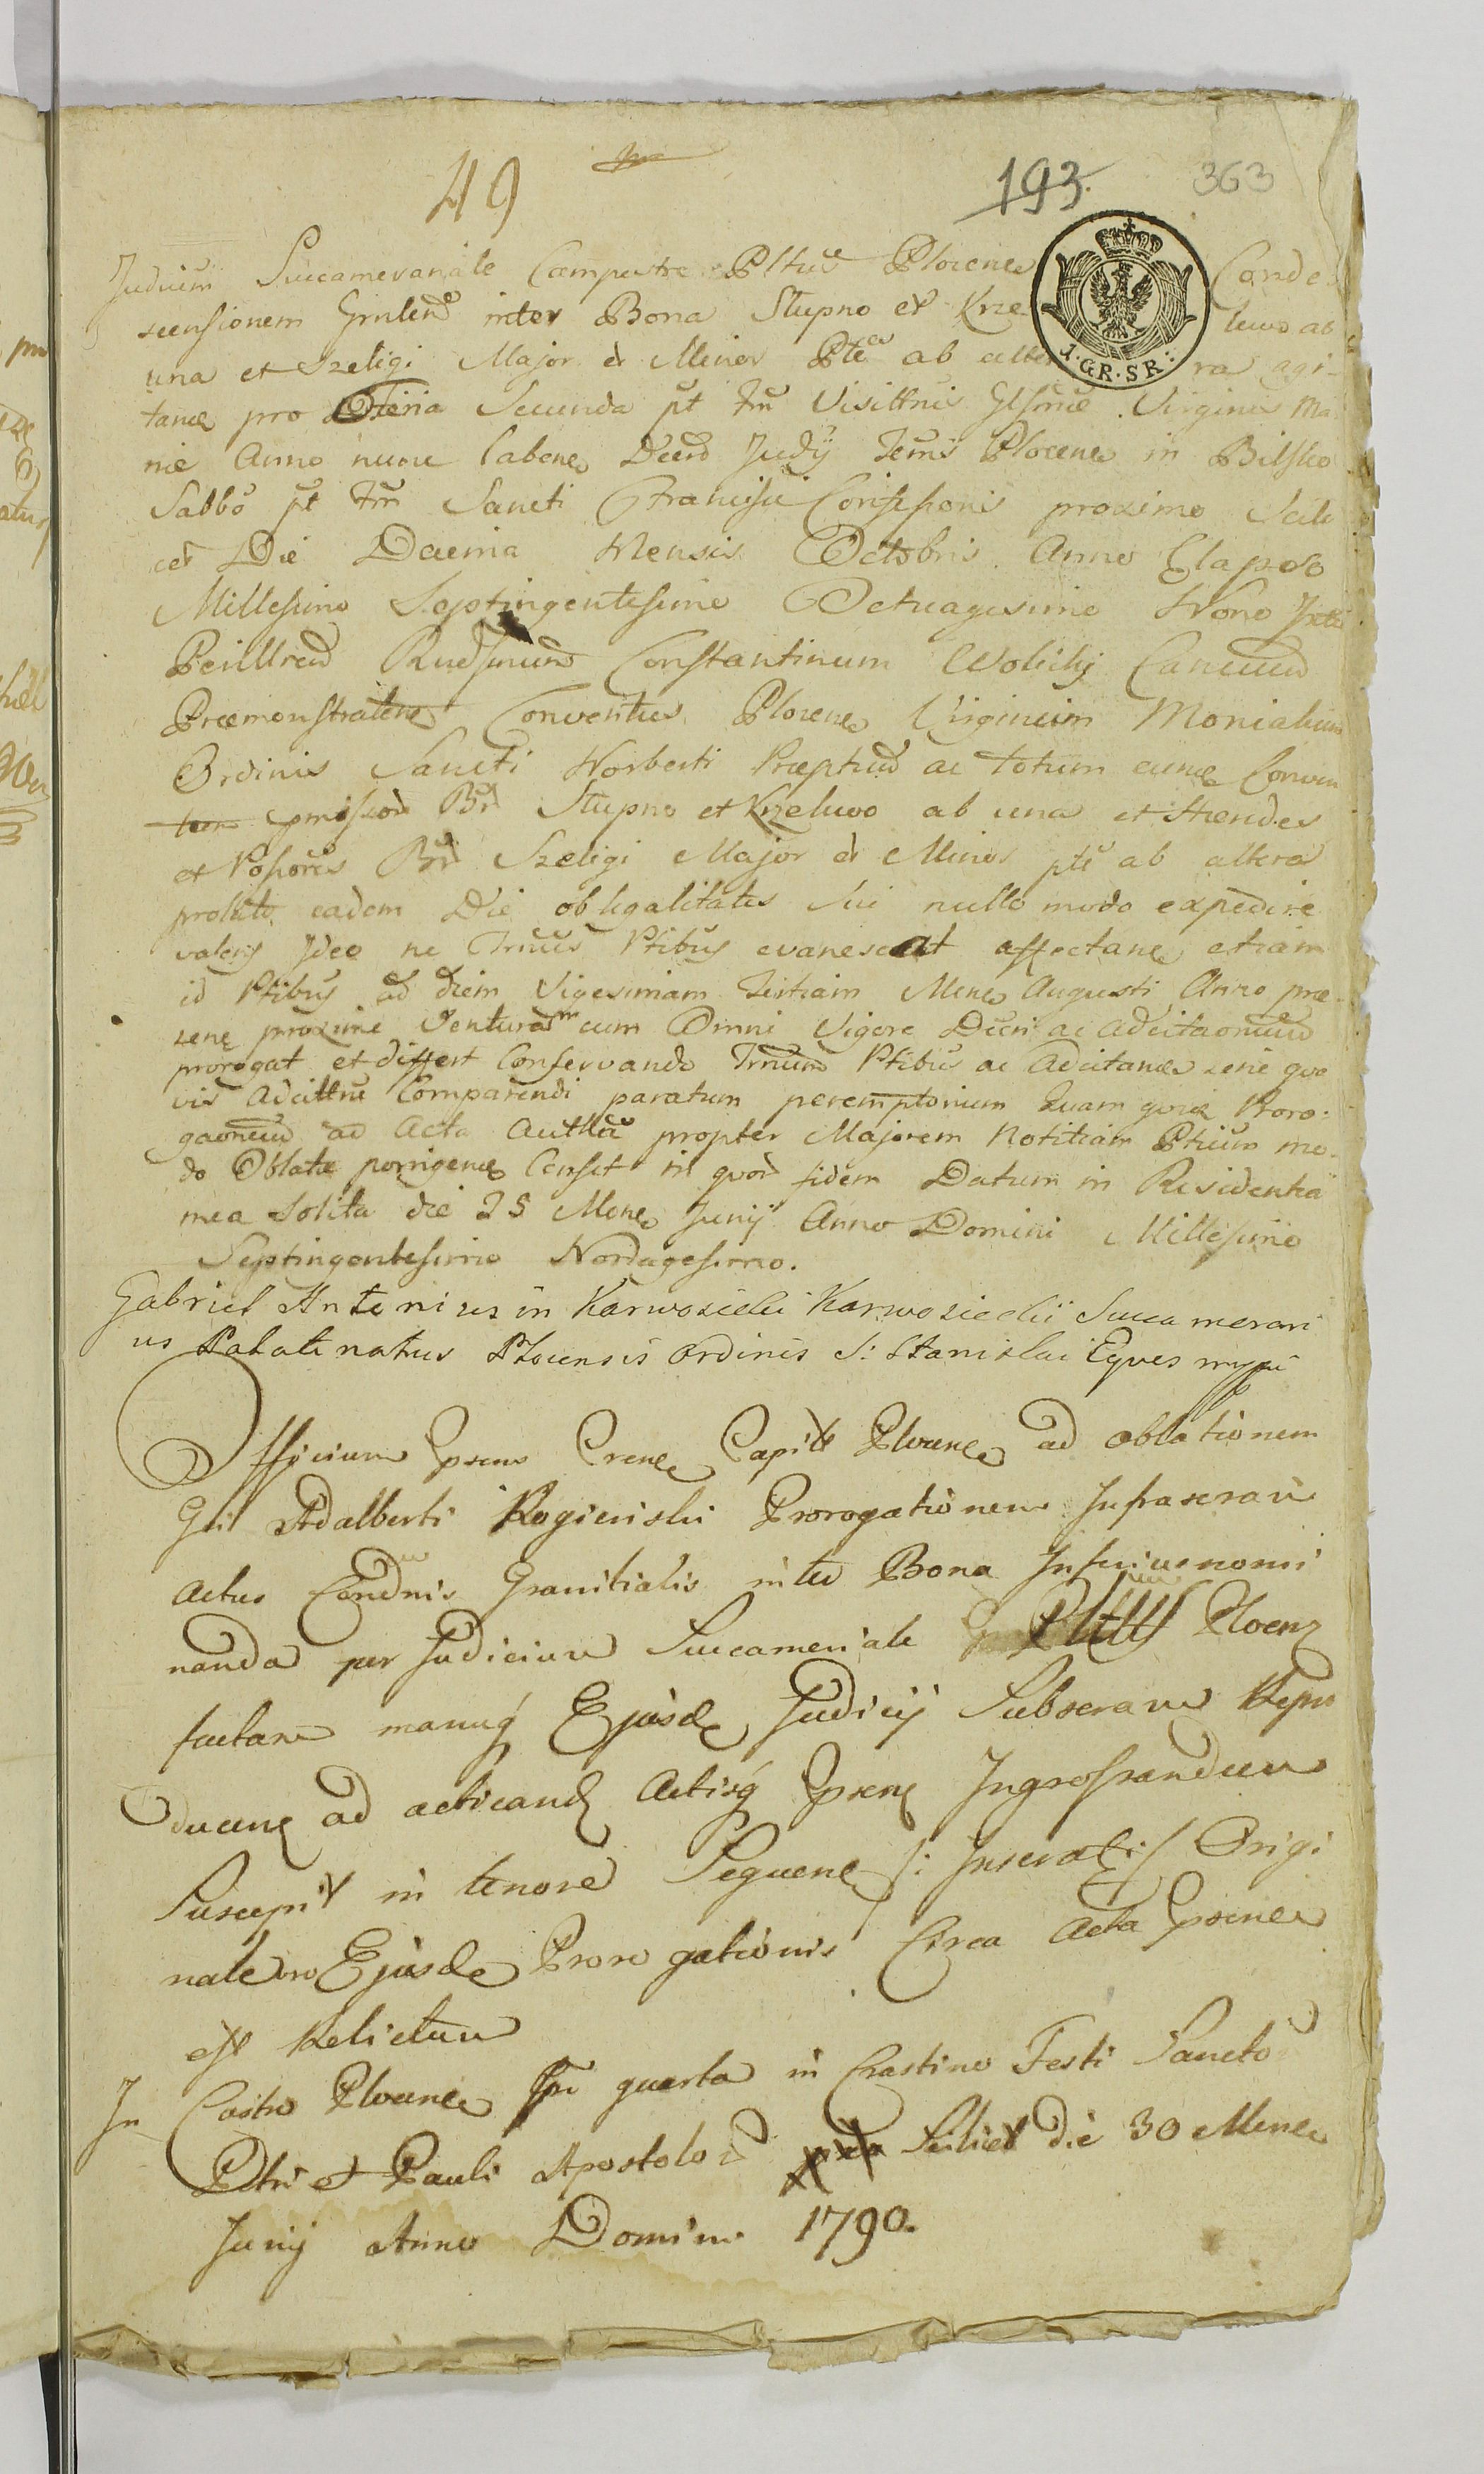 49
193.
363
Judicium Succamerariale Campestre Pltus Plocenē Conde-
scensionem Grnlem inter Bona Stupno et Krze lewo ab
1. GR. SR:
una et Szeligi Major et Minor Ptē ab alte ra agi-
tanē pro Feria Secunda pt Fm Visittnis Glsmæ Virginis Ma
riæ Anno nunc labenē Deero Judij Temis Plocenē in Bilsko
Sabbo pt Fm Sancti Francisci Confessoris proximo Scili
cet Die Decima Mensis Octobris Anno Elapso
Millesimo Septingentesimo Octuagesimo Nono
Perillrem Rndsmum Constantinum Wolicky Canicum
Præmonstratenē Conventus Plocenē Virginum Monialium
Ordinis Sancti Norberti Præptum ac totum eunē Conven
tum Br Stupno et Krzelewo ab una et Hæredes
et Possores Br Szeligi Major et Minor pte ab altera
eadem Die obligalitates Sui nullo modo expedire
valens Ideo ne Trnus Ptibus evanescat affectanē etiam
id Ptibus ad diem Vigesimam Tertiam Menē Augusti Anno præ-
senē proxime Venturam cum Omni Vigore Decri ac Adcitaonum
prorogat et differt Conservando Trnum Ptibus ac Adcitanē sene quo
vis Adcittne Comparendi paratum peremptorium Quam quidē Proro-
gaonem ad Acta Authca propter Majorem Notitiam Ptium mo-
do Oblatæ porrigenē Censet in quod fidem Datum in Residentia
mea Solita die 25 Menē Junij Anno Domini Millesimo
Septingentesimo Nonagesimo.
Gabriel Antonius in Karwosieki Karwosiecki Succamerari
us Palatinatus Plocensis Ordinis S: Stanislai Eques mppi
Officium Cap̄tle Plocenē ad oblationem
Gsi Adalberti Rogienski Prorogationem Infrascram
Actus Condnis Granitialis inter Bona Inferius nomi
nanda per Judicium Succameriale Pltus Plocenē
factam manuq Ejusdē Judicij Subscram Repro
ducenē ad acticandē Actisq prsenē Ingrossandum
Suscepit in tenore Sequenē /: Inseratr:/ Origi
nale vro Ejusdē Prorogationis Circa Acta prsenē
est Relictum
In Castro Plocenē Fria quarta in Crastino Festi Sancto
Petri et Pauli Apostolor Scilicet die 30 Menē
Junij Anno Domini 1790.